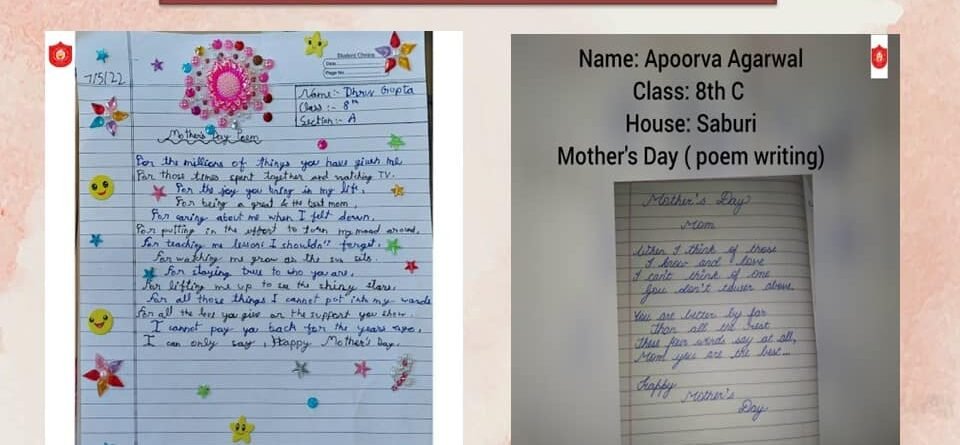 7/5/22
Student Choice
Date
Page No.
Name:- Dhruv Gupta
Class :- 8th
Section:- A
Mother's Day Poem
For the millions of things you have given me
For those times spent together and watching TV.
For the joy you bring in my life,
For being a great & the best mom,
For caring about me when I felt down,
For putting in the effort to turn my mood around,
For teaching me lessons I shouldn't forget,
For watching me grow as the sun sets.
For staying true to who you are,
For lifting me up to see the shiny stars,
For all those things I cannot put into my words
For all the love you give or the support you show.
I cannot pay you back for the years ago,
I can only say, Happy Mother's Day.
Name: Apoorva Agarwal
Class: 8th C
House: Saburi
Mother's Day ( poem writing)
Mother's Day
Mom
When I think of those
I know and love
I can't think of one
You don't tower above
You are better by far
Than all the rest
These few words say it all,
Mom you are the best...
Happy
Mother's
Day